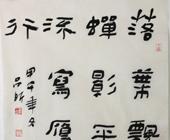 落葉飄
蟬影平
流寫雁
行
甲午年冬